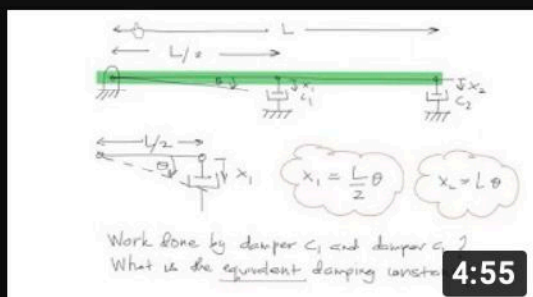 L
L/2
θ x₁ x₂
c₁ c₂
L/2
θ x₁
x₁ = L/2 θ
x₂ = Lθ
Work done by damper c₁ and damper c₂ ?
What is the equivalent damping
4:55